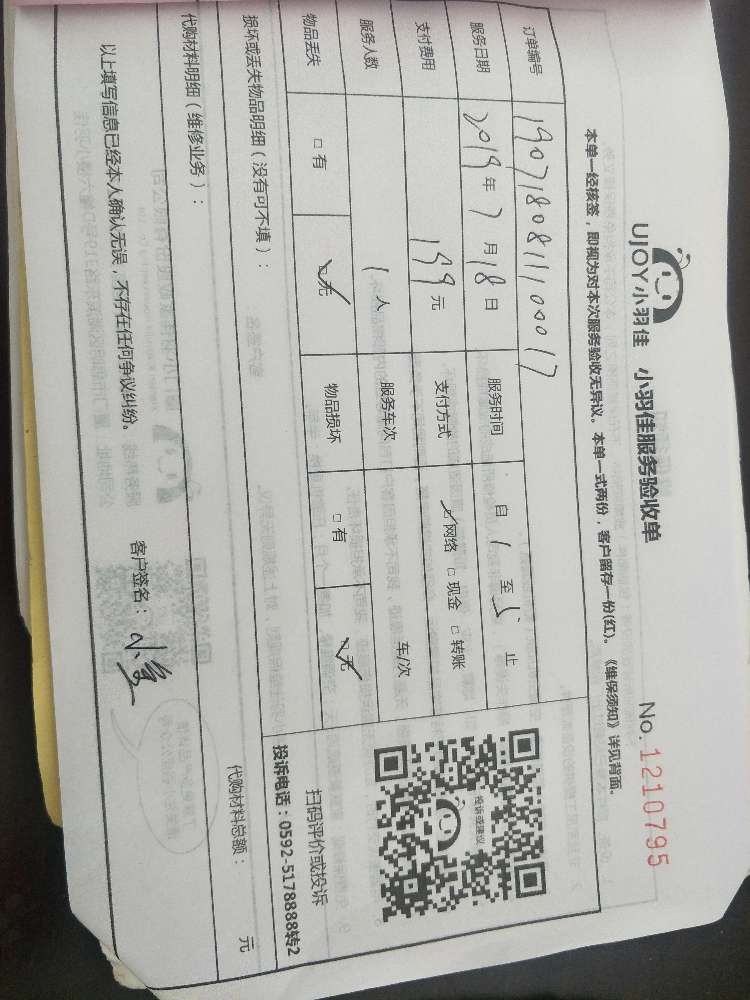 UJOY小羽佳 小羽佳服务验收单
No. 1210795
本单一经核签，即视为对本次服务验收无异议。本单一式两份，客户留存一份(红)。《维保须知》详见背面。
订单编号 190718081110017
服务日期 2019年7月18日 服务时间 自1至5止
支付费用 199元 支付方式 ☑网络 □现金 □转账
服务人数 1人 服务车次 车/次
物品丢失 □有 ☑无 物品损坏 □有 ☑无
投诉或建议
扫码评价或投诉
投诉电话：0592-5178888转2
损坏或丢失物品明细（没有可不填）：
代购材料明细（维修业务）： 代购材料总额： 元
以上填写信息已经本人确认无误，不存在任何争议纠纷。 客户签名：